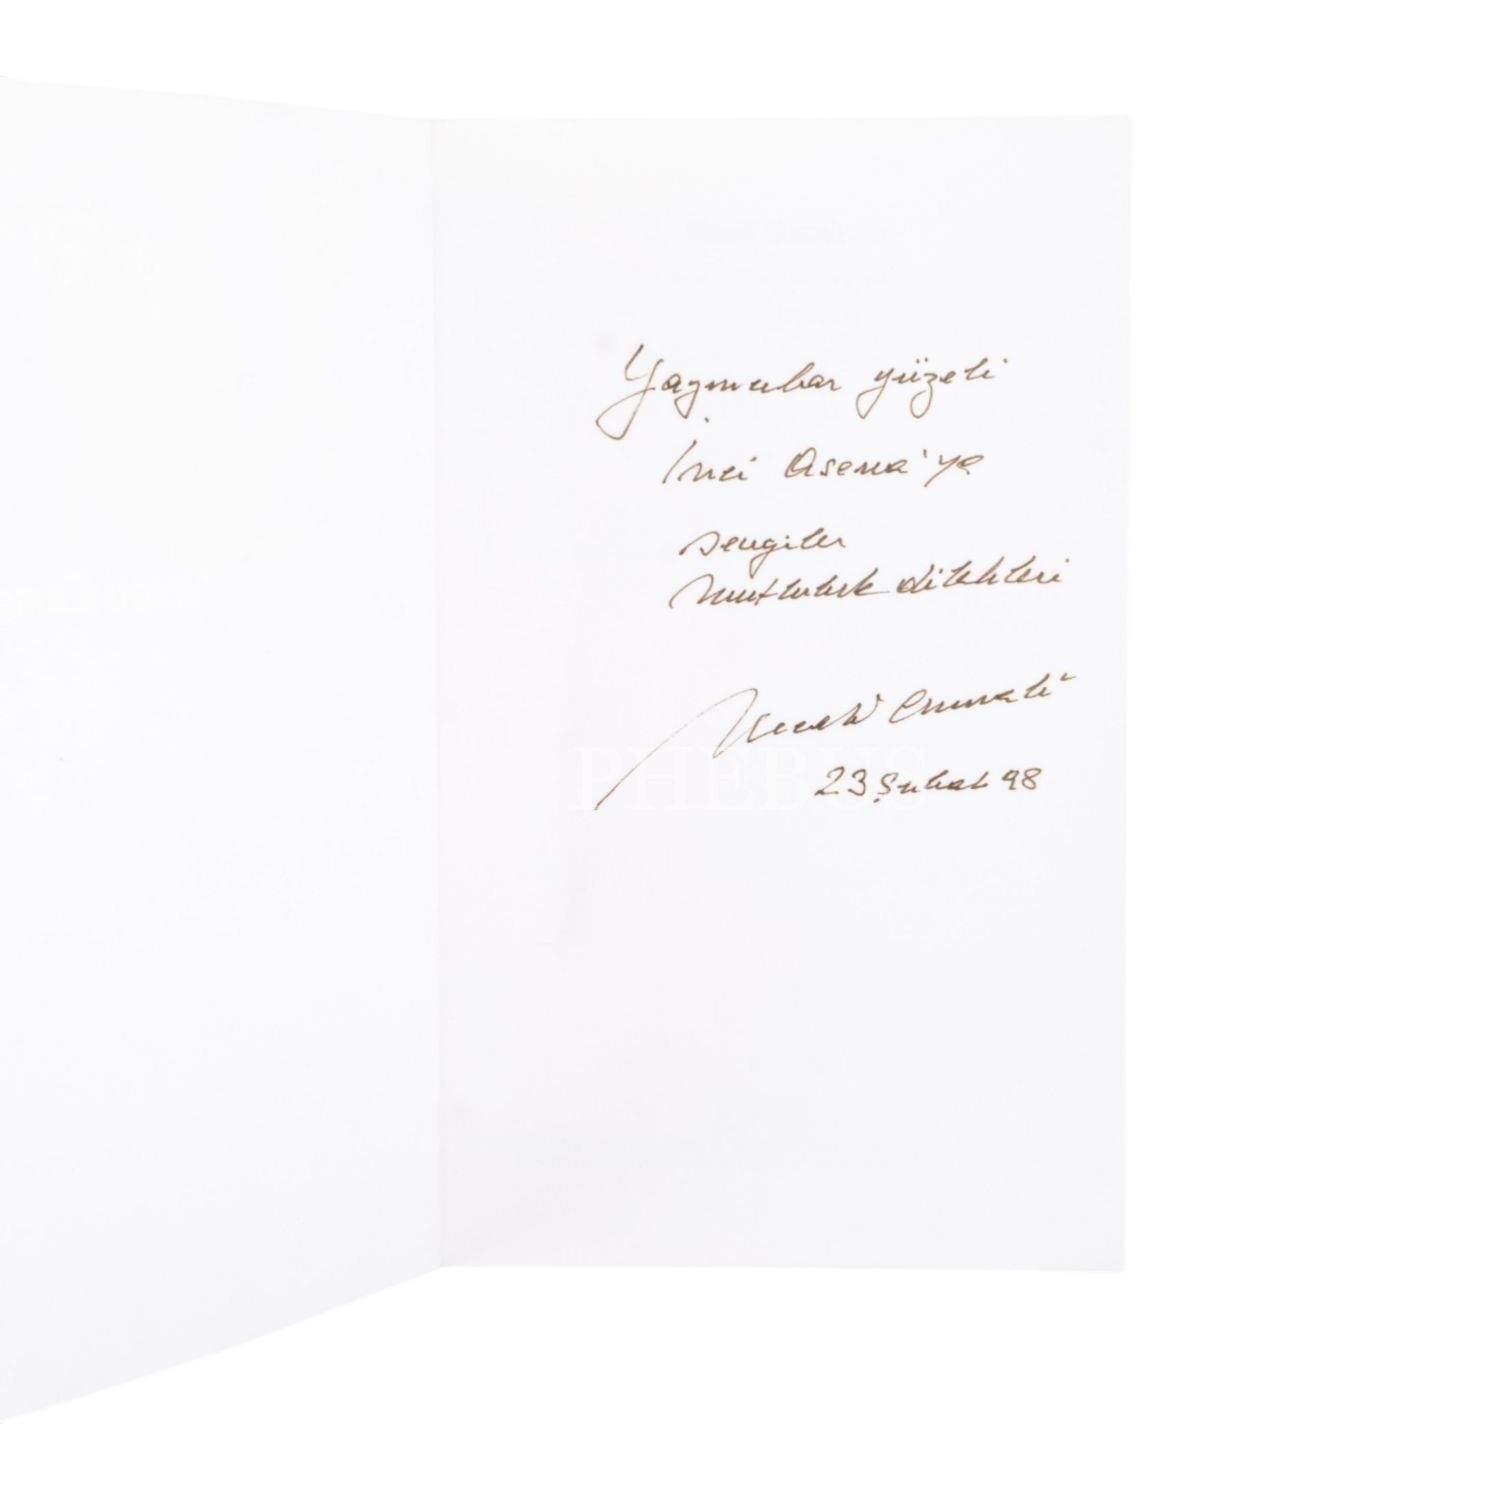 Yağmurlar güzeli
İnci Asena'ya
sevgiler
mutluluk dilekleri
Necati Cumalı
23 Şubat 98
PHEBUS